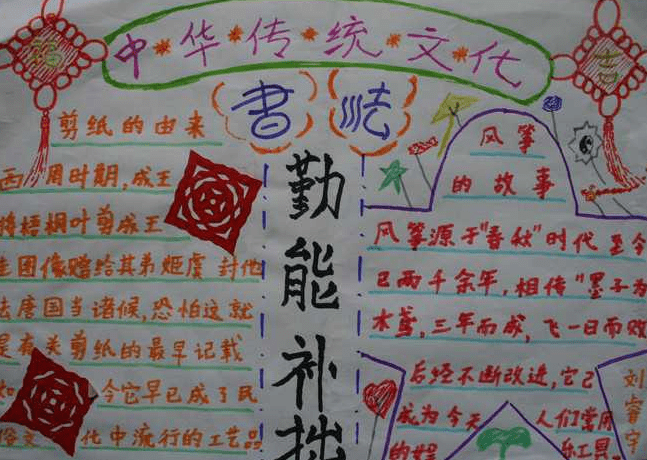 福
中华传统文化
吉
书法
剪纸的由来
西周时期,成王
将梧桐叶剪成王
圭图像赠给其弟姬虞 封他
去唐国当诸侯,恐怕这就
是有关剪纸的最早记载
如 今它早已成了民
俗文 化中流行的工艺品
勤能补拙
风筝
的故事
风筝源于"春秋"时代 至今
已两千余年,相传"墨子为
木鸢,三年而成,飞一日而败
后经不断改进,它已
成为今天 人们常用
的娱 乐工具。
刘睿宇